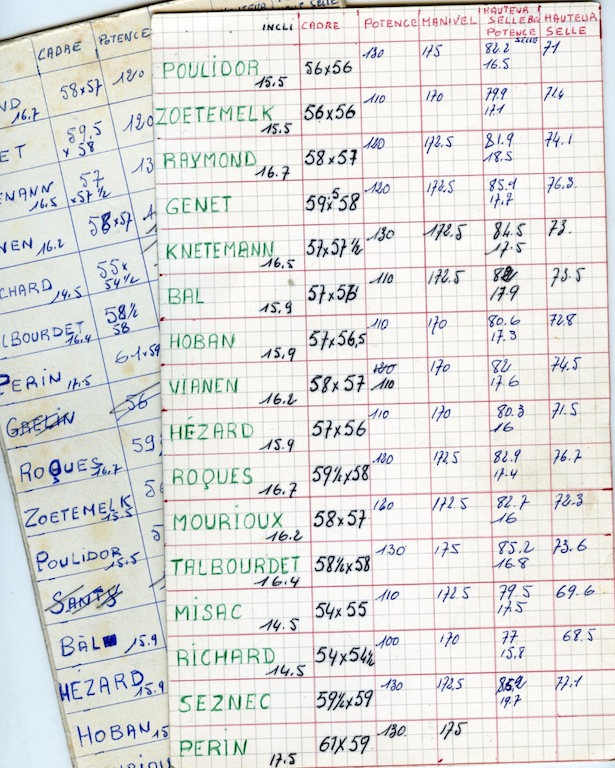 INCLI CADRE POTENCE MANIVEL HAUTEUR SELLE BP POTENCE SELLE HAUTEUR SELLE
POULIDOR 15.5 56x56 130 175 82.2 16.5 71
ZOETEMELK 15.5 56x56 110 170 79.9 17.1
RAYMOND 16.7 58x57 120 172.5 81.9 18.5 74.1
GENET 59x58 5 120 172.5 85.1 17.7 76.3
KNETEMANN 16.5 57x57 ½ 130 172.5 84.5 17.5 73.
BAL 15.9 57x56 110 172.5 17.9 73.5
HOBAN 15.9 57x56,5 110 170 80.6 17.3 72.8
VIANEN 16.2 58x57 120 110 170 82 17.6 74.5
HÉZARD 15.9 57x56 110 170 80.3 16 71.5
ROQUES 16.7 59½x58 120 172.5 82.9 17.4 76.7
MOURIOUX 16.2 58x57 120 172.5 82.7 16 72.3
TALBOURDET 16.4 58½x58 130 175 85.2 16.8 73.6
MISAC 14.5 54x55 110 172.5 79.5 17.5 69.6
RICHARD 14.5 54x54½ 100 170 77 15.8 68.5
SEZNEC 59½x59 130 172.5 19.7 77.1
PERIN 17.5 61x59 130 175
CADRE POTENCE
ND 16.7 58x57 120
ET 59,5 x 58 120
ENANN 16.5 57 x57 ½ 13
NEN 16.2 58x57
CHARD 14.5 55x 54½
LBOURDET 16.4 58½ 58
PERIN 17.5 61x59
GAELIN 56
ROQUES 16.7 59
ZOETEMELK 15.5
POULIDOR 15.5
SANTY
BAL 15.9
HÉZARD 15.9
HOBAN 15